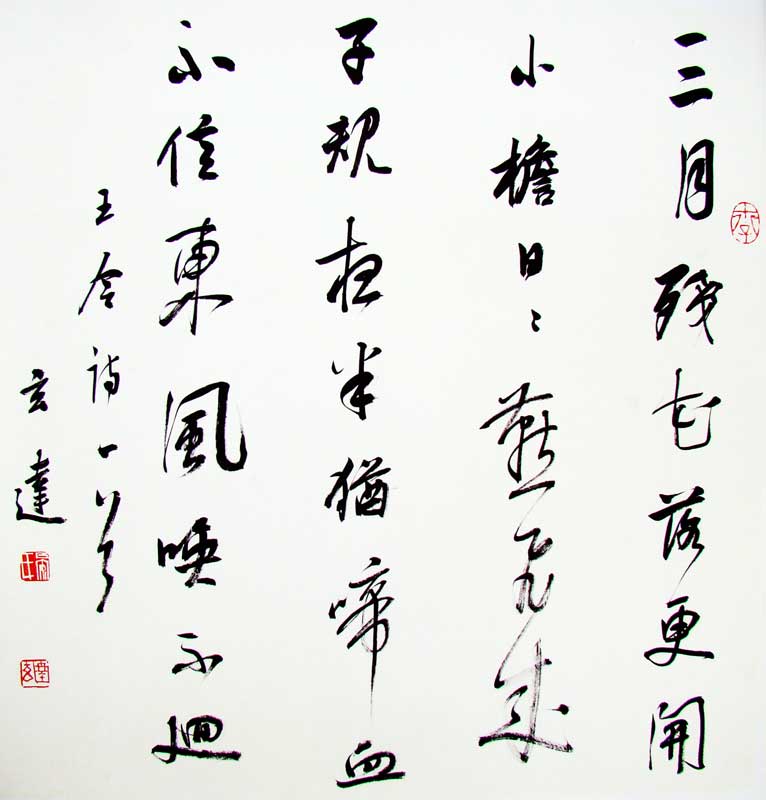 三月殘花落更開
小檐日〻燕飛來
子規夜半猶啼血
不信東風喚不迴
王令诗一首
玄達